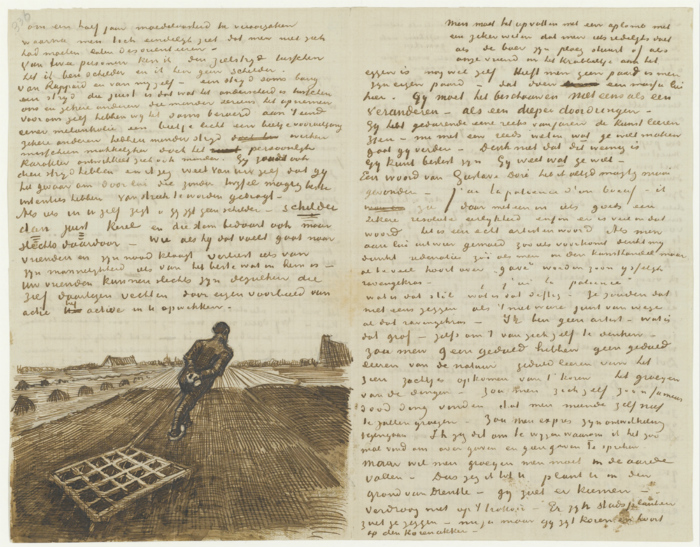 om een half jaar moederoverste te veroorzaken
waarna men toch eindelijk ziet dat men niet zich
had moeten laten desorienteeren –
Van twee personen ken ik den zielstrijd tusschen
het ik ben schilder en ik ben geen schilder.
Van Rappard en van mij zelf – een strijd soms bang
een strijd die juist is dat wat het onderscheid is tusschen
ons en zekere anderen die minder serieus het opnemen
voor ons zelf hebben wij het soms beroerd aan 't eind
eener melankolie een beetje licht een beetje vooruitgang
zekere anderen hebben minder strijd doch werken
misschien makkelijker doch het persoonlijk
karakter ontwikkelt zich ook minder. Gij zoudt ook
dien strijd hebben en ik zeg weet van uw zelf dat gij
het gevaar om door lui die zonder twijfel magnifieke
intenties hebben van streek te worden gebragt –
Als iets in U zelf zegt "gij zijt geen schilder" – schilder
dan juist kerel en die stem bedaart ook maar
slechts daardoor – Wie als hij dat voelt gaat naar
vrienden en zijn nood klaagt verliest iets van
zijn mannelijkheid iets van het beste wat in hem is –
Uw vrienden kunnen slechts zijn degenen die
zelf daartegen vechten door eigen voorbeeld van
actie het active in U opwekken.
Men moet het opvatten met een aplomb met
een zeker weten dat men iets redelijks doet
als de boer zijn ploeg stuurt of als
onze vriend in het krabbeltje aan het
eggen is nog wel zelf. Heeft men geen paard is men
zijn eigen paard – dat doen een massa lui
hier. Gij moet het beschouwen niet eens als een
veranderen – als een dieper doordringen –
Gij hebt gedurende eene reeks van jaren de kunst leeren
zien – nu met een reeds weten wat ge wilt maken
gaat gij verder – Denk niet dat dit weinig is
Gij kunt beslist zijn Gij weet wat ge wilt –
Een woord van Gustave Doré heb ik altijd magtig mooi
gevonden – j'ai la patience d'un boeuf – ik
zie daar meteen in iets goeds een
zekere resolute eerlijkheid enfin er is veel in dat
woord het is een echt artisten woord. Als men
aan lui uit wier gemoed zoo iets voortkomt denkt mij
dunkt redenaties zoo als men in den kunsthandel maar
al te veel hoort over "gave" worden zoo'n ijselijk
ravengekras – j'ai la patience –
wat is dat stil wat is dat deftig – Ze zouden dat
niet eens zeggen als 't niet ware juist van wege
al dat ravengekras – Ik ben geen artist – wat is
dat grof – zelfs om 't van zich zelf te denken –
zou men geen geduld hebben geen geduld
leeren van de natuur geduld leeren van het
zien zachtjes opkomen van 't koren het groeijen
van de dingen – zou men zich zelf zoo'n enorm
dood ding vinden dat men meende zelf niet
te zullen groeijen – Zou men expres zijn ontwikkeling
tegengaan. Ik zeg dit om te wijzen waarom ik het zoo
mal vind om over gaven en geen gaven te spreken
Maar wil men groeijen men moet in de aarde
vallen – Dus zeg ik tot U plant U in den
grond van Drenthe – gij zult er kiemen –
verdroog niet op 't trottoir – Er zijn stadsplanten
zult ge zeggen – nu ja maar gij zijt koren en hoort
op den korenakker –